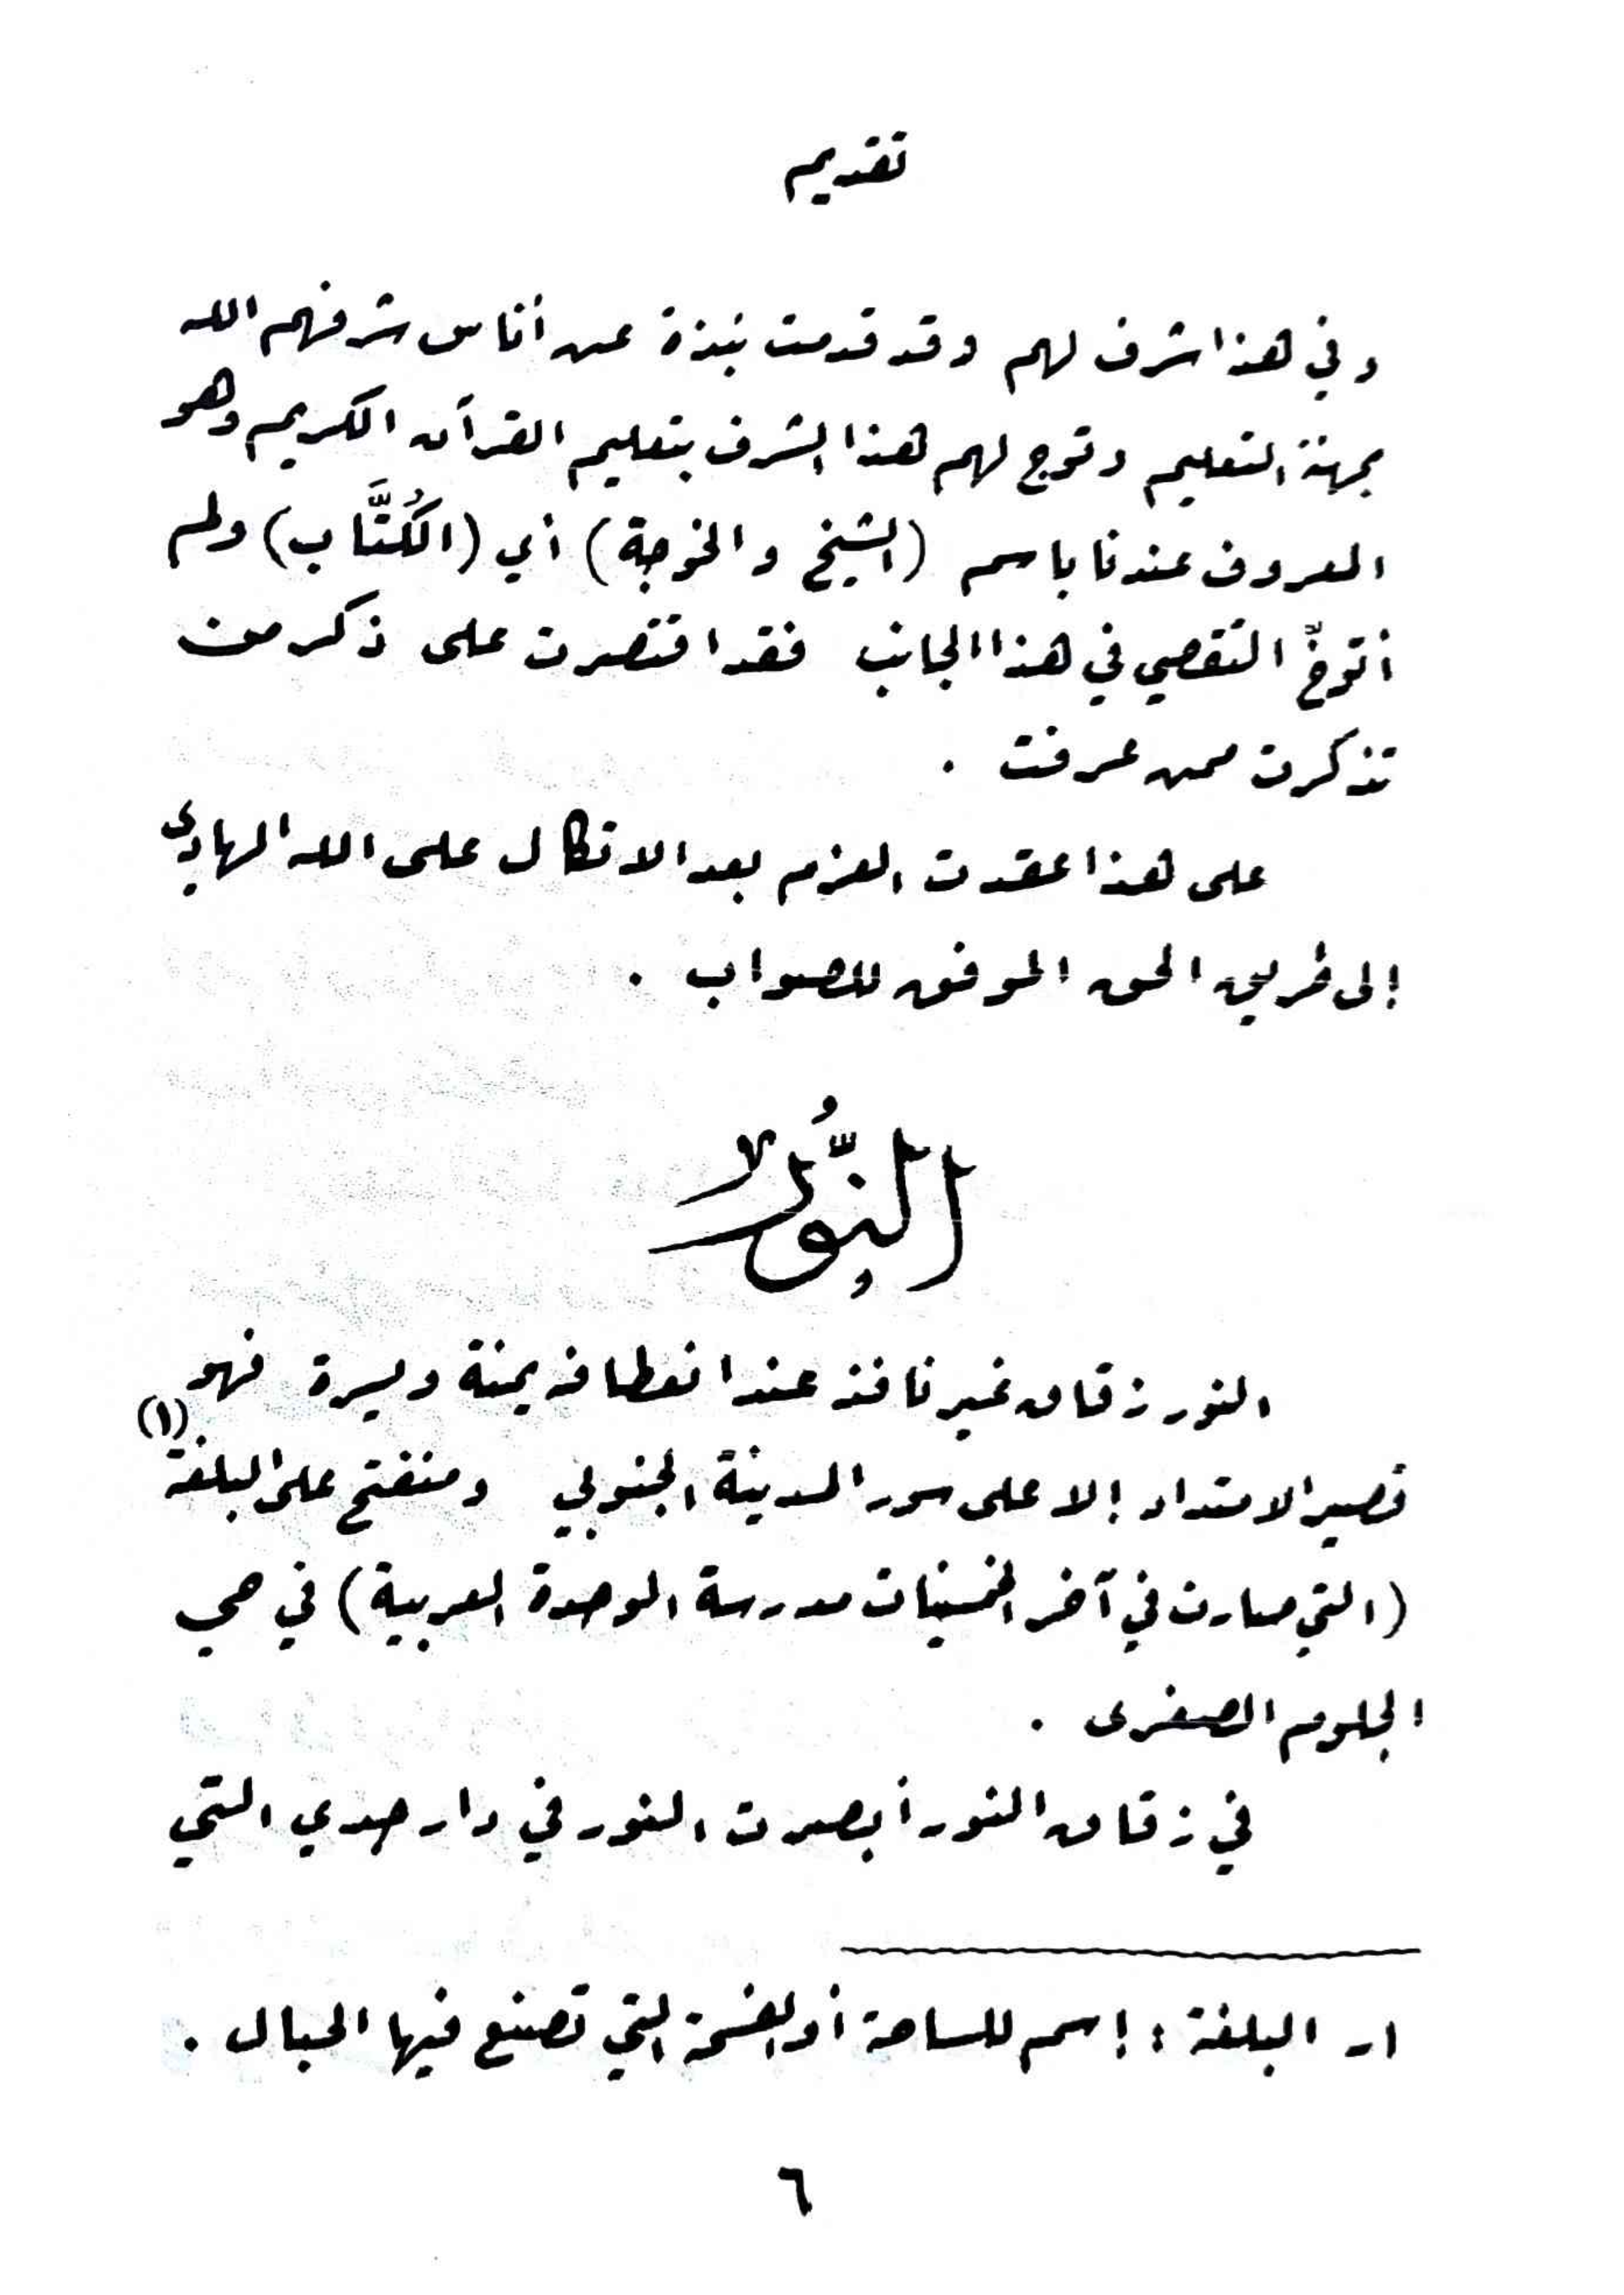 تقديم
وفي هذا شرف لهم وقد قدمت نبذة عن أناس شرفهم الله
بمهنة التعليم وتوج لهم هذا الشرف بتعليم القرآن الكريم وهو
المعروف عندنا باسم (الشيخ والخوجة) أي (الكُتَّاب) ولم
أتوخَّ التقصي في هذا الجانب فقد اقتصرت على ذكر من
تذكرت ممن عرفت .
على هذا عقدت العزم بعد الاتكال على الله الهادي
إلى طريق الحق الموفق للصواب .
النُّور
النور زقاق غير نافذ عند انعطافه يمنة ويسرة فهو
قصير الامتداد إلا على سور المدينة الجنوبي ومنفتح على البلغة (١)
(التي صارت في آخر الخمسينات مدرسة الوحدة العربية) في حي
الجلوم الصغرى .
في زقاق النور أبصرت النور في دار جدي التي
١ـ البلغة : إسم للساحة أو الفسحة التي تصنع فيها الحبال .
٦